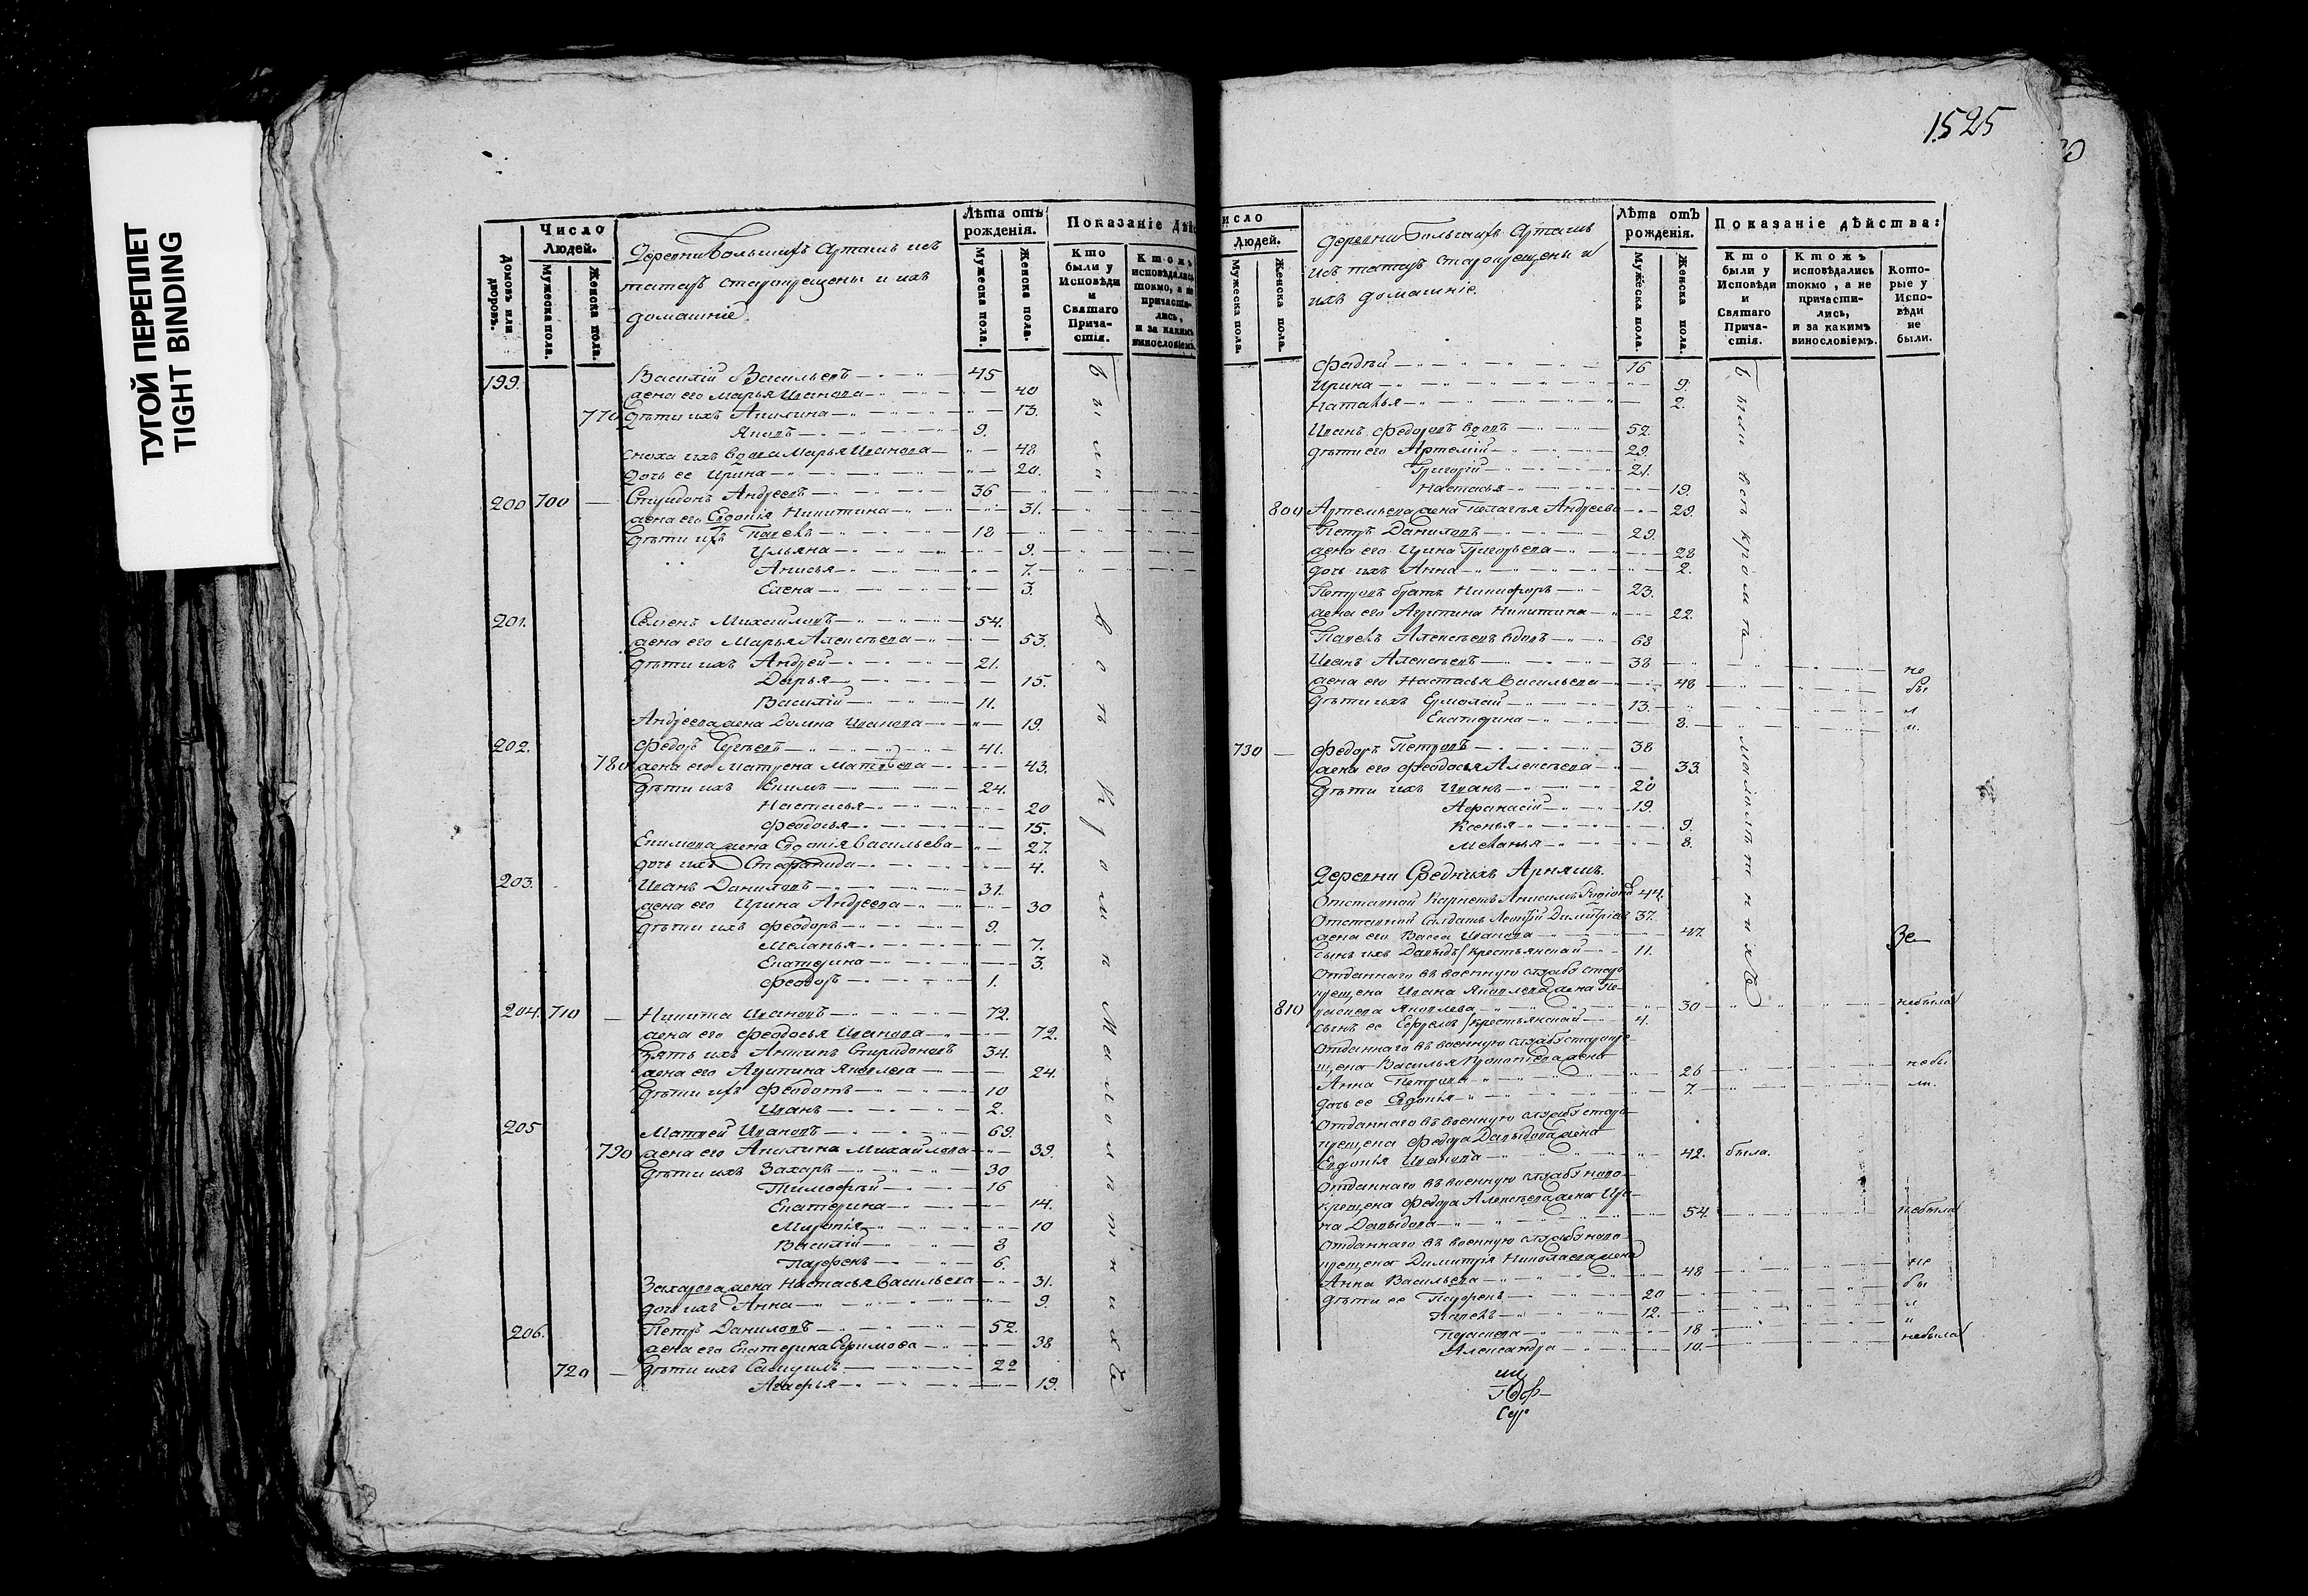 ТУГОЙ ПЕРЕПЛЕТ
TIGHT BINDING
1525
Домовъ или дворовъ.
Число Людей.
Мужеска пола.
Женска пола.
Деревни Большихъ Арташъ изъ
татаръ старокрещены и ихъ
домашніе
Лѣта отъ рожденія.
Мужеска пола.
Женска пола.
Показаніе дѣй
Кто были у Исповѣди и Святаго Причастія.
Ктожъ исповѣдались токмо, а не причастились, и за какимъ винословіемъ.
199. Василій Васильевъ 45
жена его Марья Иванова 40
770 дѣти ихъ Акилина 13.
Яковъ 9.
сноха ихъ вдова Марья Иванова 48
дочь ее Ирина 20.
200 700 Спиридонъ Андреевъ 36
жена его Евдокія Никитина 31.
дѣти ихъ Павелъ 18
Ульяна 9.
Анисья 7.
Елена 3.
201. Семенъ Михайловъ 54.
жена его Марья Алексѣева 53.
дѣти ихъ Андрей 21.
Дарья 15.
Василій 11.
Андреева жена Домна Иванова 19.
202. Федоръ Сергѣевъ 41.
780 жена его Матрена Матвѣева 43.
дѣти ихъ Екимъ 24.
Настасья 20
Феодосья 15.
Екимова жена Евдокія Васильева 27.
дочь ихъ Степанида 4.
203. Иванъ Даниловъ 31.
жена его Ирина Андреева 30
дѣти ихъ Феодоръ 9.
Меланья 7.
Екатерина 3.
Феодоръ 1.
204. 710 Никита Ивановъ 72.
жена его Феодосья Иванова 72.
зять ихъ Антипъ Спиридоновъ 34.
жена его Агрипина Яковлева 24.
дѣти ихъ Феодотъ 10
Иванъ 2.
205 Матвей Ивановъ 69.
790 жена его Акилина Михайлова 39.
дѣти ихъ Захаръ 30
Тимофѣй 16
Екатерина 14.
Марфія 10
Василій 8
Парфенъ 6.
Захарова жена Настасья Васильева 31.
дочь ихъ Анна 9.
206. Петръ Даниловъ 52.
жена его Екатерина Ефимова 38
720 дѣти ихъ 22
Агафья 19.
Были всѣ кромѣ малолѣтнихъ
исло
Людей.
Мужеска пола.
Женска пола.
Деревни Большихъ Арташъ
изъ татаръ старокрещены и
ихъ домашніе.
Лѣта отъ рожденія.
Мужеска пола.
Женска пола.
Показаніе дѣйства:
Кто были у Исповѣди и Святаго Причастія.
Ктожъ исповѣдались токмо, а не причастились, и за какимъ винословіемъ.
Которые у Исповѣди не были.
Фадѣй 16
Ирина 9.
Наталья 2.
Иванъ Федоровъ вдовъ 52.
дѣти его Артемій 29.
Григорій 21.
Настасья 19.
800 Артемьева жена Пелагея Андреева 29.
Петръ Даниловъ 29.
жена его Ирина Григорьева 28
дочь ихъ Анна 2.
Петровъ братъ Никифоръ 23.
жена его Агрипина Никитина 22.
Павелъ Алексѣевъ вдовъ 68
Иванъ Алексѣевъ 38
жена его Настасья Васильева 48
дѣти ихъ Ермолай 13.
Екатерина 8.
не
бы
л
и.
730 Федоръ Петровъ 38
жена его Феодосья Алексѣева 33.
дѣти ихъ Иванъ 20
Афанасій 19.
Ксенья 9.
Меланья 8.
Были всѣ кромѣ малолѣтнихъ
Деревни Среднихъ Арняшъ.
Отставной Карнетъ Анисимъ 44.
Отставной солдатъ Димитріевъ 37.
жена его Васса Иванова 47.
сынъ ихъ Давыдъ /крестьянской 11.
Отданнаго въ военную службу старо
крещена Ивана Яковлева жена Па-
810 расковья Яковлева 30 небыла
сынъ ее Ефремъ /крестьянской 4.
Отданнаго въ военную службу старокре
щена Василья Прокопьева жена
Анна Петрова 26 небы
дочь ее Евдокія 7. ли.
Отданнаго въ военную службу старо
крещена Федора Давыдова жена
Евдокія Иванова 42. была.
Отданнаго въ военную службу ново
крещена Федора Алексѣева жена Ири-
на Давыдова 54. небыла
Отданнаго въ военную службу ново
крещена Димитрія Николаева жена
Анна Васильева 48 не
дѣти ее Парфенъ 20 бы
Павелъ 12. л
Парасковья 18 и
Александра 10. небыла